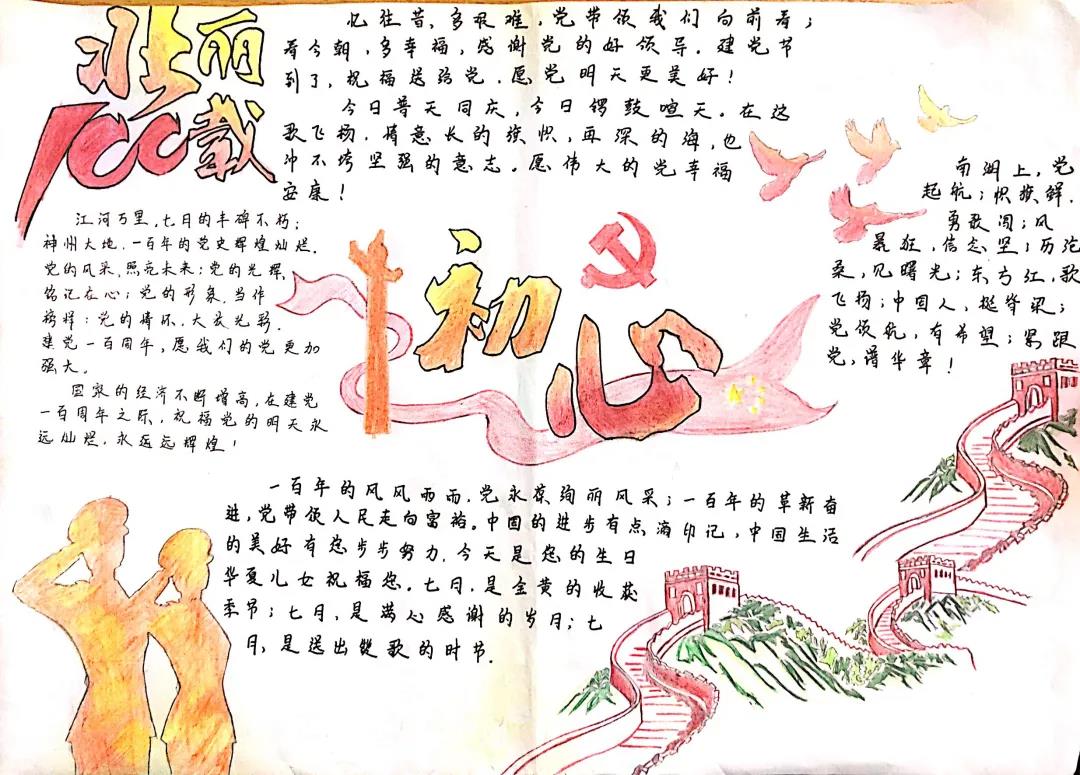 壮丽
100载
忆往昔,多艰难,党带领我们向前看;
看今朝,多幸福,感谢党的好领导。建党节
到了,祝福送给党,愿党明天更美好!
今日普天同庆,今日锣鼓喧天。在这
歌飞扬,情意长的
再深的海,也
冲不垮坚强的意志。愿伟大的党幸福
安康!
江河万里,七月的丰碑不朽;
神州大地,一百年的党史辉煌灿烂。
党的风采,照亮未来;党的光辉,
铭记在心;党的形象,当作
榜样;党的情怀,大放光彩。
建党一百周年,愿我们的党更加
强大。
国家的经济不断增高,在建党
一百周年之际,祝福党的明天永
远灿烂,永远远辉煌!
初心
南湖上,党
起航;帜旗鲜,
勇敢闯;风
暴狂,信念坚;历沧
桑,见曙光;东方红,歌
飞扬;中国人,挺脊梁;
党领航,有希望;紧跟
党,谱华章!
一百年的风风雨雨,党永葆绚丽风采;一百年的革新奋
进,党带领人民走向富裕。中国的进步有点滴印记,中国生活
的美好有您步步努力,今天是您的生日
华夏儿女祝福您。七月,是金黄的收获
季节;七月,是满心感谢的岁月;七
月,是送出赞歌的时节。